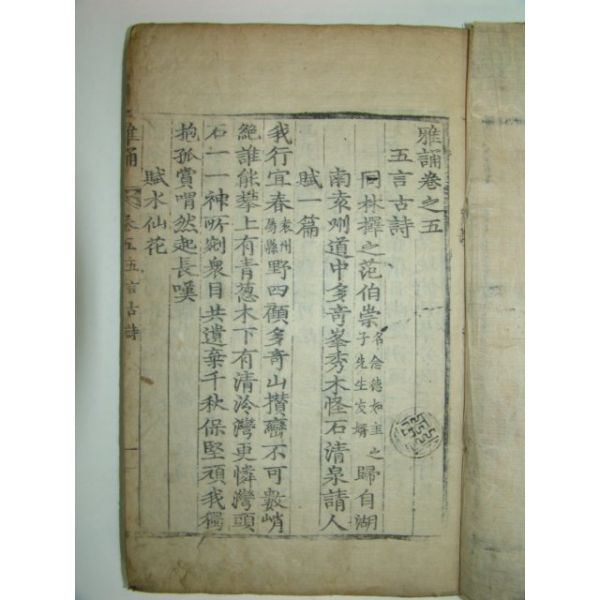 雅誦卷之五
五言古詩
同林擇之范伯崇名念德如圭之子先生友壻歸自湖
南袁州道中多奇峯秀木怪石清泉請人
賦一篇
我行宜春袁州属縣野四顧多奇山攢巒不可數峭
絶誰能攀上有青葱木下有清泠灣更憐灣頭
石一一神所剜衆目共遺棄千秋保堅頑我獨
抱孤賞喟然起長嘆
賦水仙花
雅誦 卷五五言古詩 一